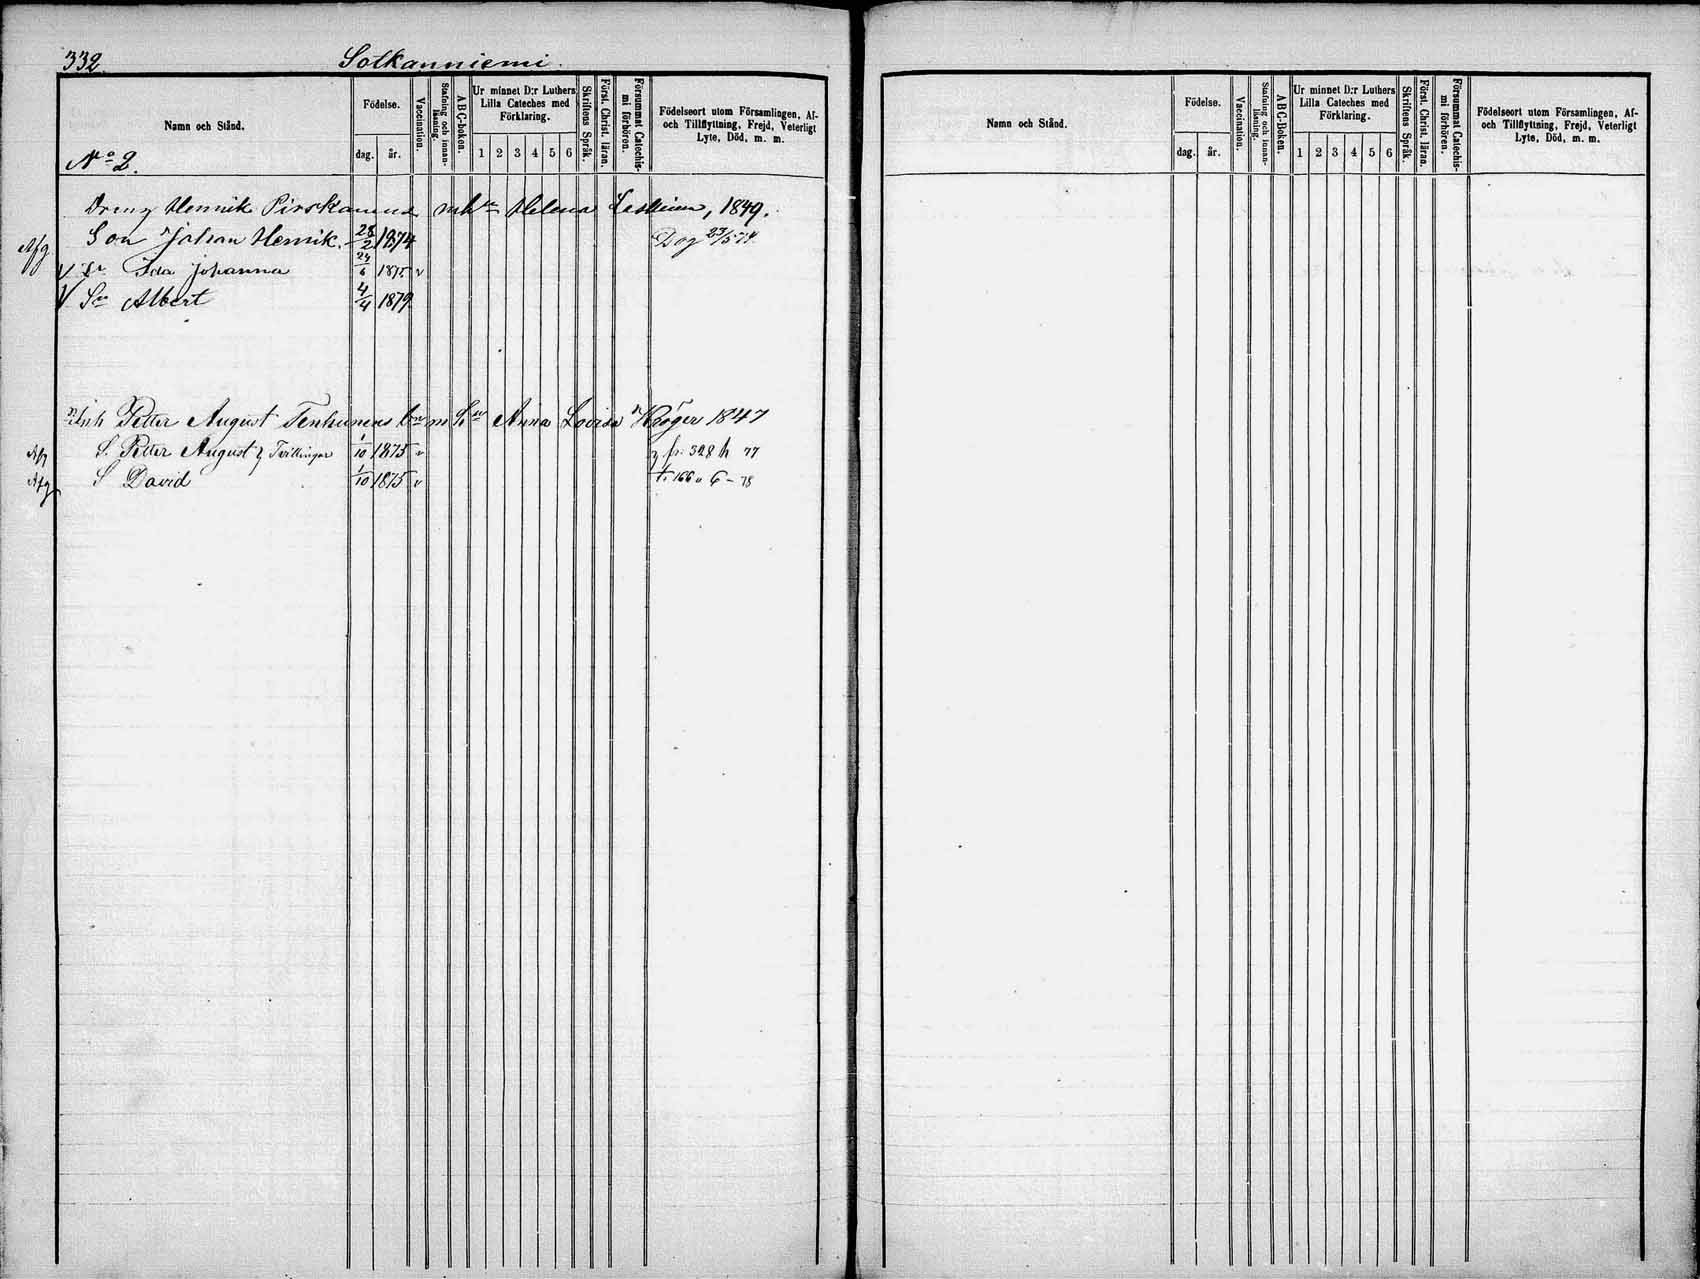 332. Sotkanniemi.
Namn och Stånd. Födelse. dag. år. Vaccination. Stafning och innan-läsning. A B C-boken. Ur minnet D:r Luthers Lilla Cateches med Förklaring. 1 2 3 4 5 6 Skriftens Språk. Först. Christ. läran. Försummat Catechis-mi förhören. Födelseort utom Församlingen, Af- och Tillflyttning, Frejd, Veterligt Lyte, Död, m. m.
No 2.
Dreng Henrik Pirskanens m h Helena 1849.
Afg Son Johan Henrik. 28/2 1874 Dog 23/5 74.
V Dr Ida Johanna 24/6 1875 v
V Sn Albert 4/4 1879
Inh Petter August Tenhunens bn m h Anna Lovisa Kröger 1847
Afg S. Petter August } Tvillingar 1/10 1875 v fr. 328 h 77
Afg S David 1/10 1875 v t. 166 6 - 78
Namn och Stånd. Födelse. dag. år. Vaccination. Stafning och innan-läsning. A B C-boken. Ur minnet D:r Luthers Lilla Cateches med Förklaring. 1 2 3 4 5 6 Skriftens Språk. Först. Christ. läran. Försummat Catechis-mi förhören. Födelseort utom Församlingen, Af- och Tillflyttning, Frejd, Veterligt Lyte, Död, m. m.